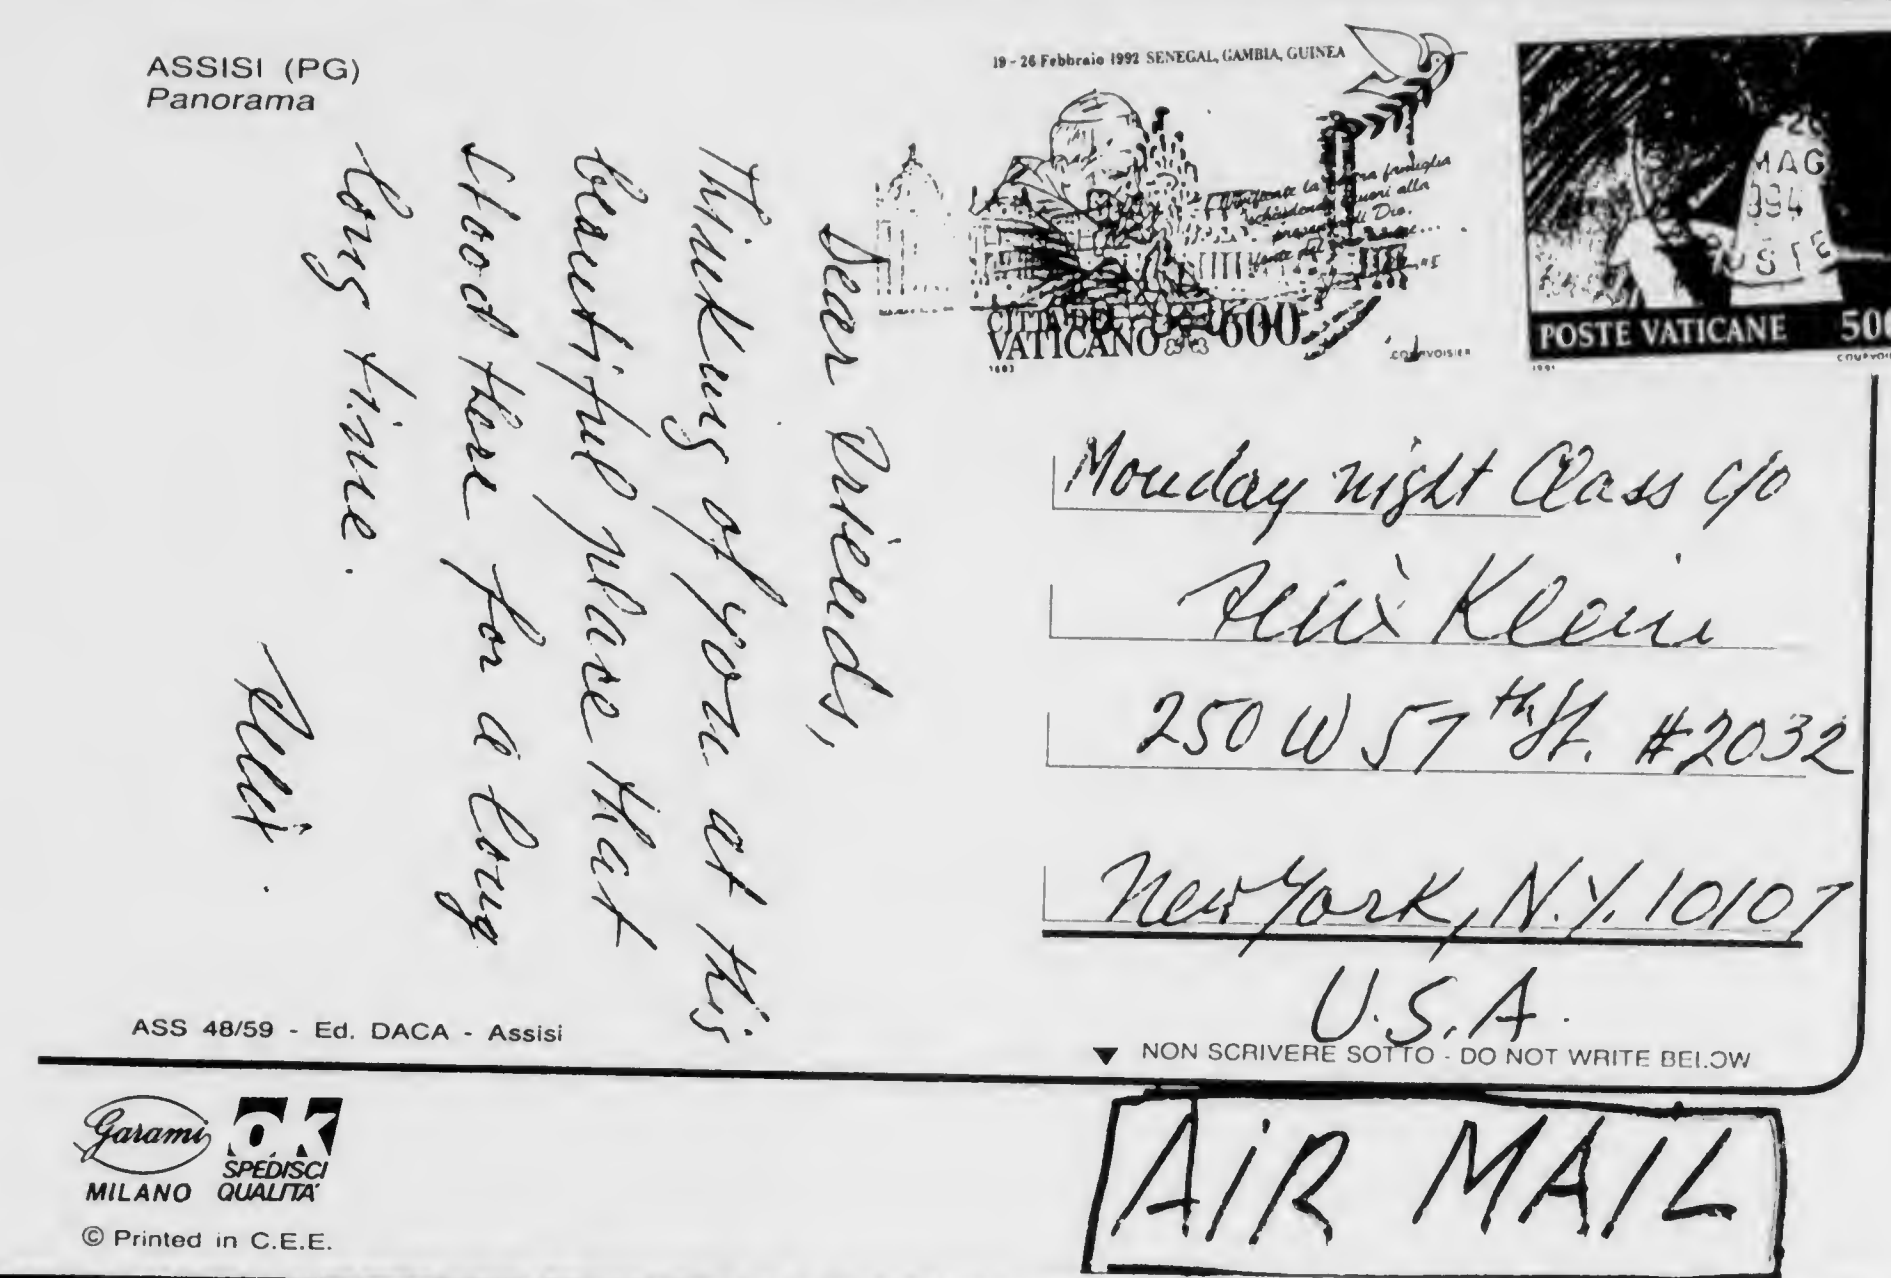 ASSISI (PG)
Panorama
Dear Friends,
Thinking of you at this
beautiful place that
stood there for a long
long time.
Felix.
ASS 48/59 - Ed. DACA - Assisi
Garami
MILANO
OK
SPEDISCI
QUALITA'
© Printed in C.E.E.
19 - 26 Febbraio 1992 SENEGAL, GAMBIA, GUINEA
CITTA' DEL
VATICANO 600
COURVOISIER
MAG
POSTE VATICANE 500
1991
Monday night Class c/o
Felix Klein
250 W 57th St. #2032
New York, N.Y. 10107
U.S.A.
NON SCRIVERE SOTTO - DO NOT WRITE BELOW
AIR MAIL